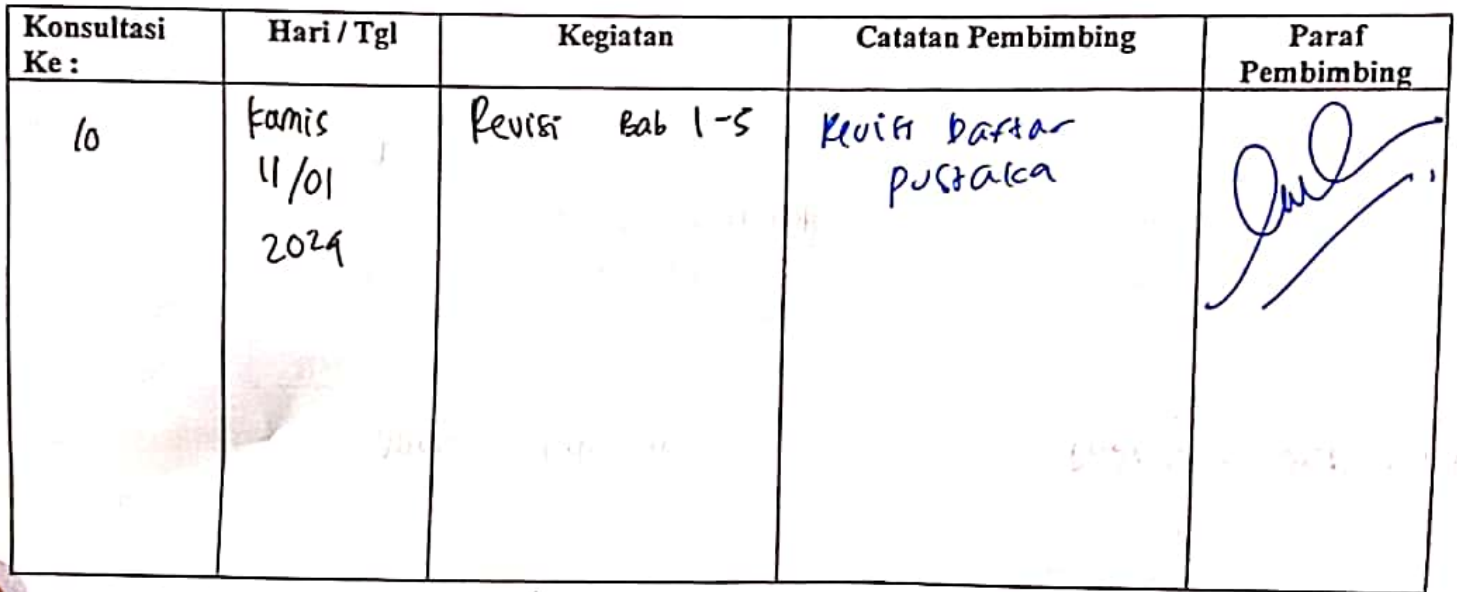 Konsultasi Ke :
Hari / Tgl
Kegiatan
Catatan Pembimbing
Paraf Pembimbing
10
Kamis
11/01
2024
Revisi Bab 1-5
Revisi Daftar
pustaka